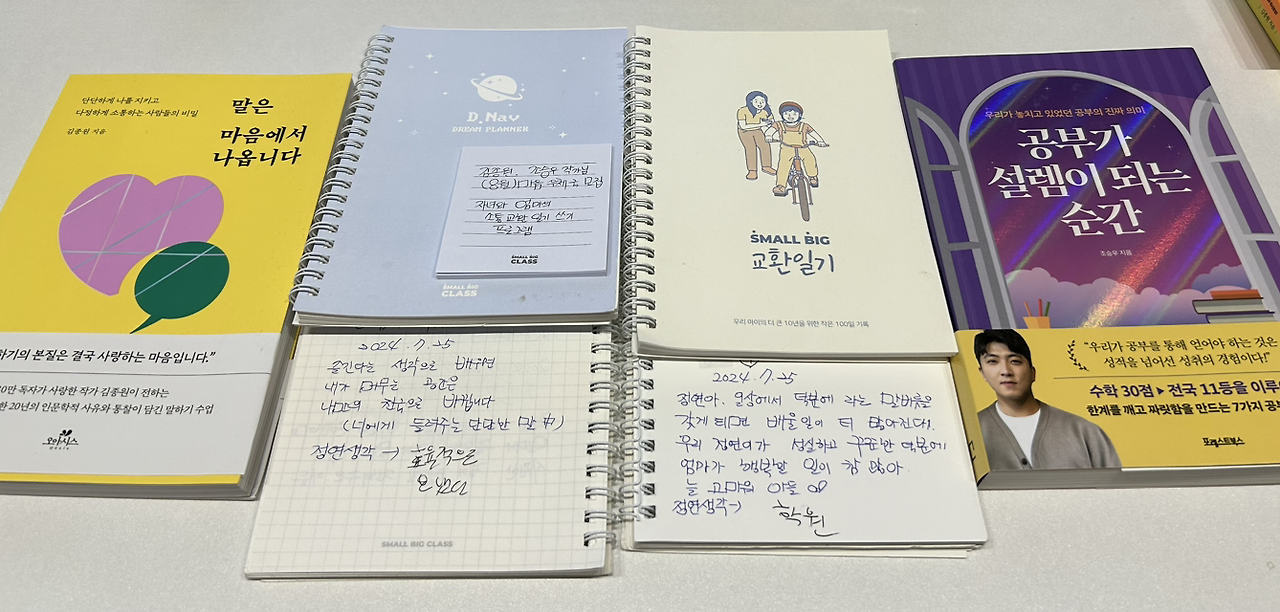 단단하게 나를 지키고
다정하게 소통하는 사람들의 비밀
김종원 지음
말은
마음에서
나옵니다
하기의 본질은 결국 사랑하는 마음입니다."
만 독자가 사랑한 작가 김종원이 전하는
한 20년의 인문학적 사유와 통찰이 담긴 말하기 수업
오아시스
D.Nav
DREAM PLANNER
김종원, 조승우 작가님
모집
자녀와 엄마의
소통 교환 일기 쓰기
프로그램
SMALL BIG
CLASS
SMALL BIG
CLASS
2024. 7. 25
생각으로 배우면
내가 머무는 공간은
바뀝니다
(너에게 들려주는 단단한 말 中)
정연생각 →
SMALL BIG CLASS
SMALL BIG
교환일기
우리 아이의 더 큰 10년을 위한 작은 100일 기록
2024. 7. 25
정연아. 일상에서 덕분에 라는 말버릇을
갖게 되면 배울 일이 더 많아진대.
우리 정연이가 성실하고 꾸준한 덕분에
엄마가 행복한 일이 참 많아.
늘 고마워 아들
정연생각→ 학원
우리가 놓치고 있었던 공부의 진짜 의미
공부가
설렘이 되는
순간
조승우 지음
"우리가 공부를 통해 얻어야 하는 것은
성적을 넘어선 성취의 경험이다!"
수학 30점 ▶ 전국 11등을 이루
한계를 깨고 짜릿함을 만드는 7가지 공
포레스트북스